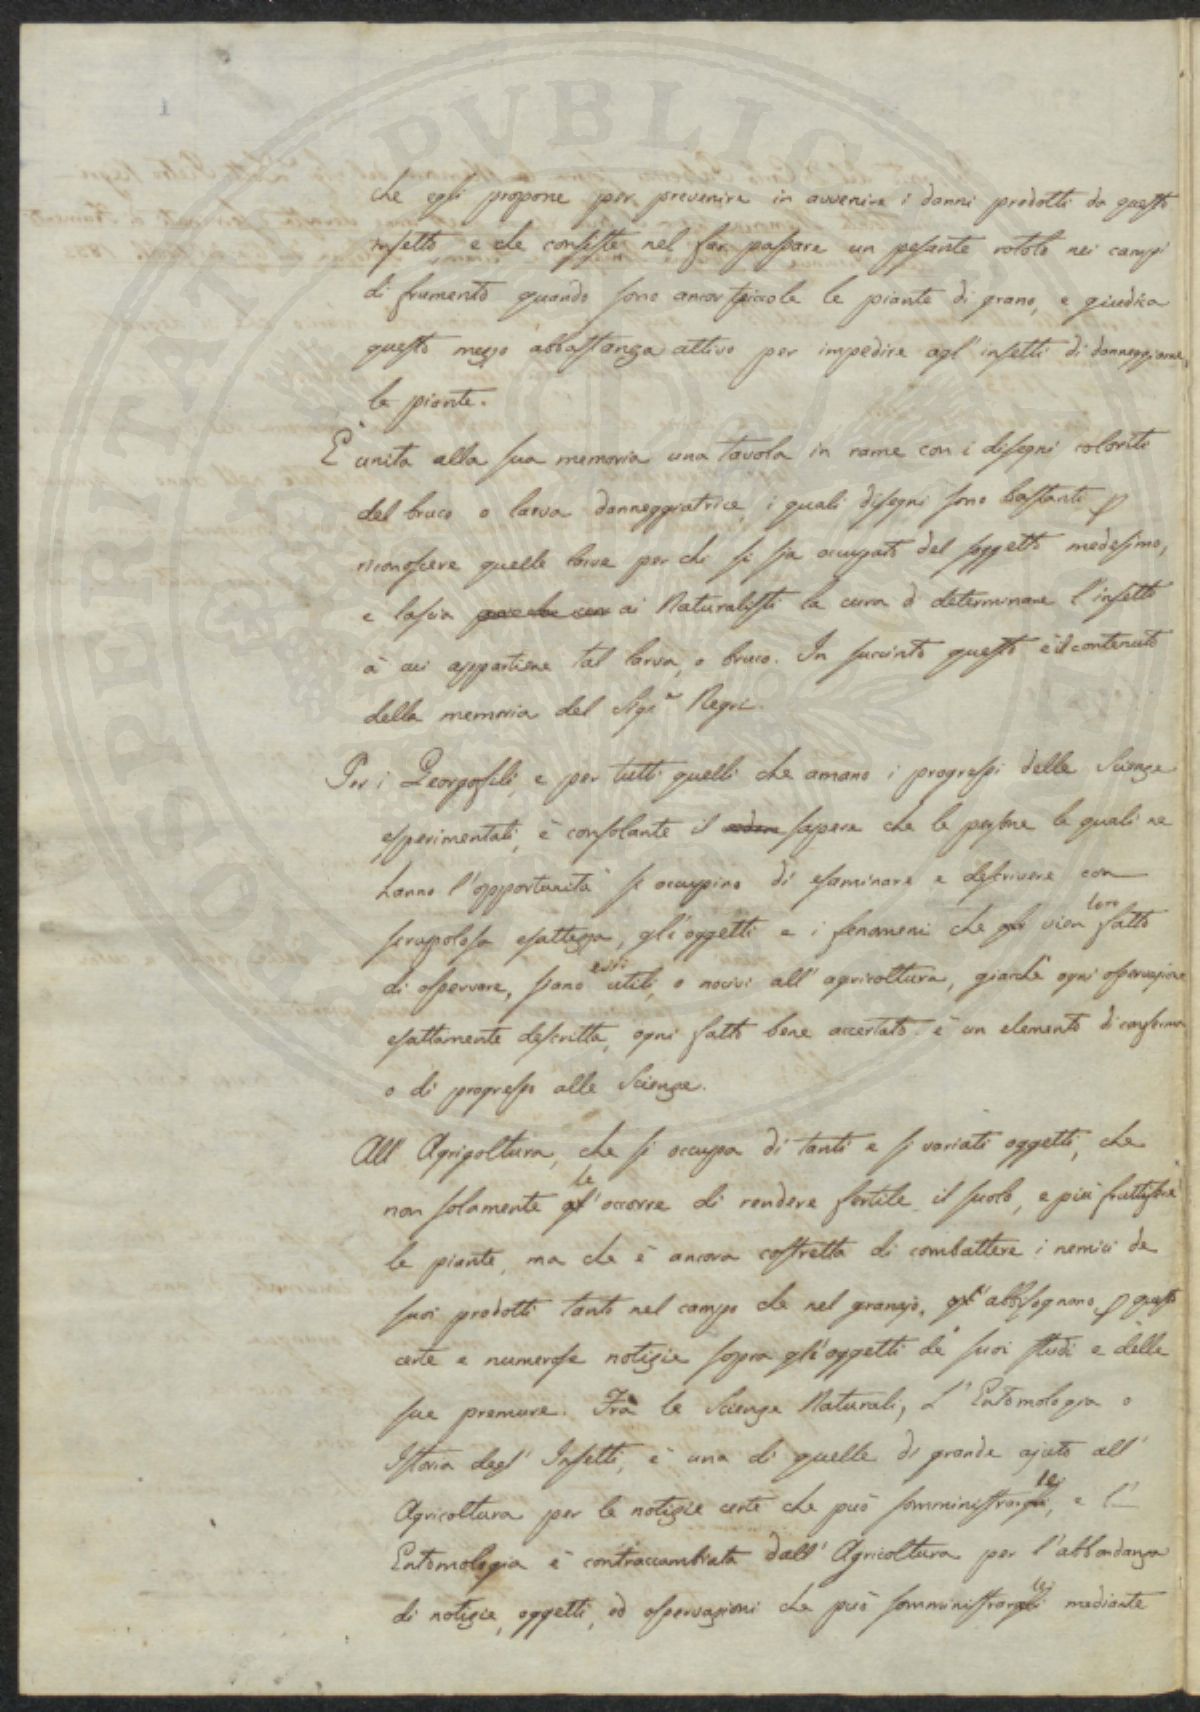 PROSPERITATI PUBLICAE
1
che egli propone per prevenire in avvenire i danni prodotti da questo
insetto, e che consiste nel far passare un pesante rotolo nei campi
di frumento quando sono ancor piccole le piante di grano, e giudica
questo mezzo abbastanza attivo per impedire agl' insetti di danneggiarne
le piante.
E' unita alla sua memoria una tavola in rame con i disegni coloriti
del bruco o larva danneggiatrice, i quali disegni sono bastanti p
riconoscere quelle larve per chi si sia occupato del soggetto medesimo,
e lascia ai Naturalisti la cura di determinare l'insetto
à cui appartiene tal larva, o bruco. In succinto questo è il contenuto
della memoria del Sigr Negri.
Per i Georgofili, e per tutti quelli che amano i progressi delle Scienze
esperimentali, è consolante il sapere che le persone le quali ne
hanno l'opportunità si occupino di esaminare e descrivere con
scrupolosa esattezza, gli oggetti e i fenomeni che gli vien loro fatto
di osservare, siano essi utili, o nocivi all' agricoltura, giacchè ogni osservazione
esattamente descritta, ogni fatto bene accertato è un elemento di conferma
o di progresso alle Scienze.
All Agricoltura, che si occupa di tanti e si variati oggetti, che
non solamente gl' le occorre di rendere fertile il suolo, e più fruttifere
le piante, ma che è ancora costretta di combattere i nemici de
suoi prodotti tanto nel campo che nel granajo, gl' abbisognano p questo
certe e numerose notizie sopra gli oggetti de' suoi studi e delle
sue premure. Fra le Scienze Naturali, L' Entomologia o
Istoria degl' Insetti, è una di quelle di grande ajuto all'
Agricoltura per le notizie certe che può somministrargli le, e l'
Entomologia è contraccambiata dall' Agricoltura per l'abbondanza
di notizie, oggetti, ed osservazioni che può somministrargli le mediante